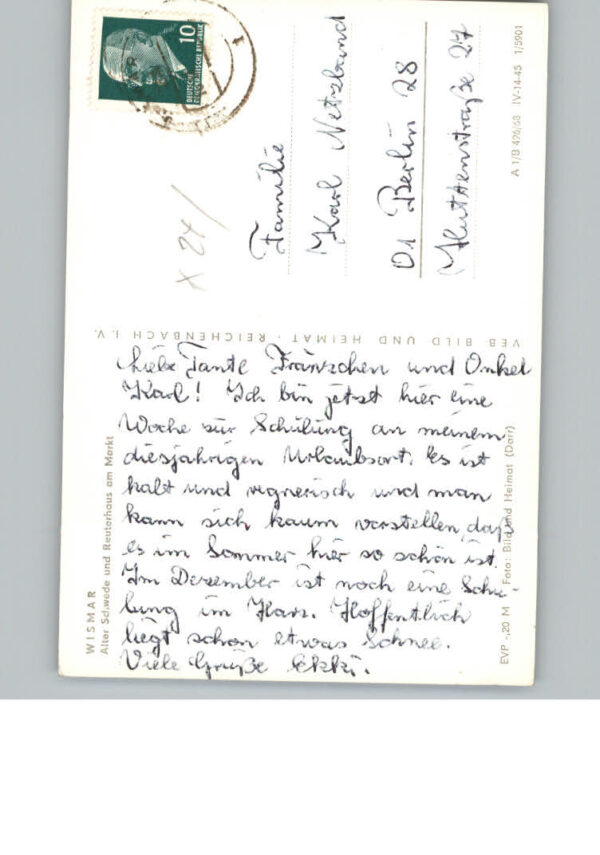 Liebe Tante Fränzchen und Onkel
Karl! Ich bin jetzt hier eine
Woche zur Schulung an meinem
diesjährigen Urlaubsort. Es ist
kalt und regnerisch und man
kann sich kaum vorstellen, daß
es im Sommer hier so schön ist.
Im Dezember ist noch eine Schu-
lung im Harz. Hoffentlich
liegt schon etwas Schnee.
Viele Grüße Ekki.
Familie
Karl Netzband
01 Berlin 28
Huttenstraße 27
X 27/
WISMAR
Alter Schwede und Reuterhaus am Markt
VEB BILD UND HEIMAT · REICHENBACH i. V.
EVP -,20 M Foto: Bild und Heimat (Darr)
A 1/B 426/68 IV-14-45 1/5901
10
DEUTSCHE
DEMOKRATISCHE REPUBLIK